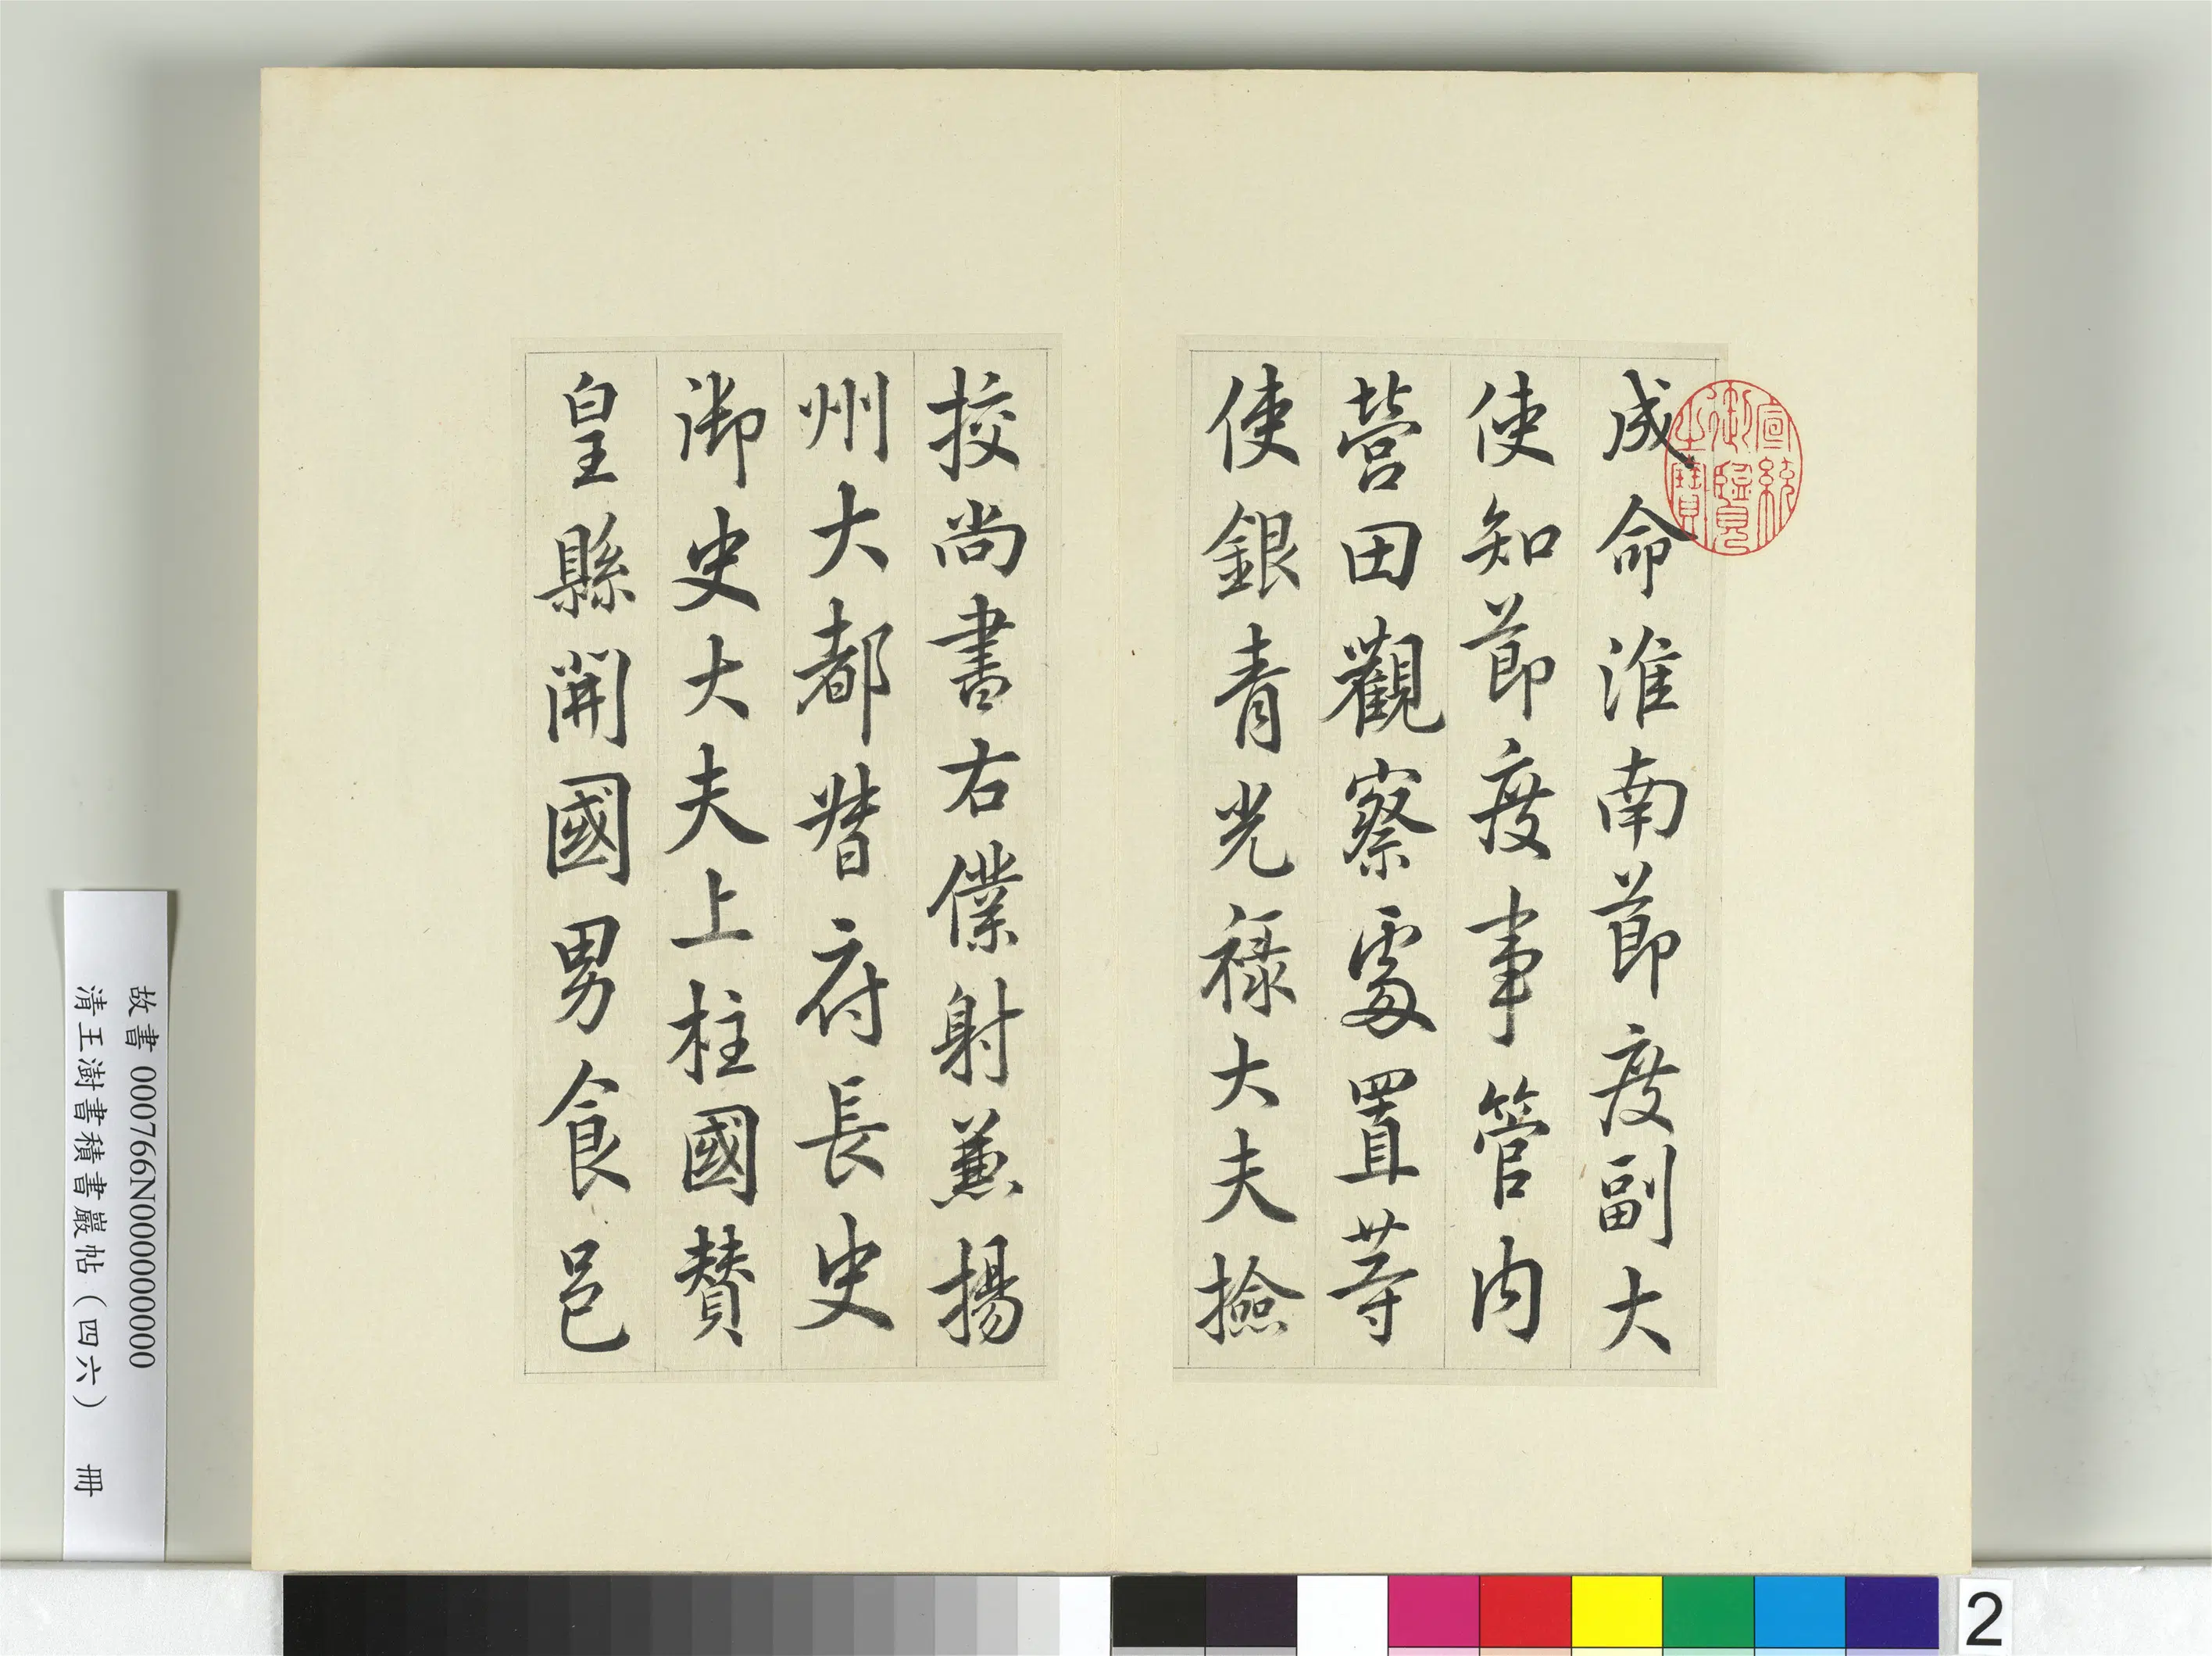 成命淮南節度副大
使知節度事管内
營田觀察處置等
使銀青光禄大夫撿
挍尚書右僕射兼揚
州大都督府長史
御史大夫上柱國贊
皇縣開國男食邑
宣統御覽之寶
故書 000766N000000000
清王澍書積書巖帖(四六) 冊
2